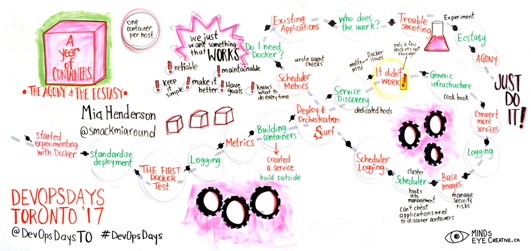 A year of CONTAINERS
THE AGONY & THE ECSTASY
one container per host
Miq Henderson
@smackmiaround
we just want something that WORKS
! reliable
! maintainable
! keep simple
! make it better
! Have goals
! Knows what to do every time
Started experimenting with Docker
Standardize deployment
THE FIRST Docker Test
Logging
Metrics
Building containers
created a service
build outside
Do I need Docker?
Existing Applications
Who does the work?
Trouble shooting
Experiment
Ecstasy
AGONY
Generic infrastructure
cook book
Convert more services
Logging
Base Images
manage security risks
Scheduler
cluster
hooks into management
can't expect applications need to discover containers
Scheduler Logging
Deploy & Orchestration
Surf
Service Discovery
dedicated hosts
It didn't work!
Docker issues
Scheduler Metrics
wrote agent checks
JUST DO IT!
DEVOPSDAYS TORONTO '17
@DevOpsDaysTO #DevOpsDays
MINDS EYE CREATIVE.CA